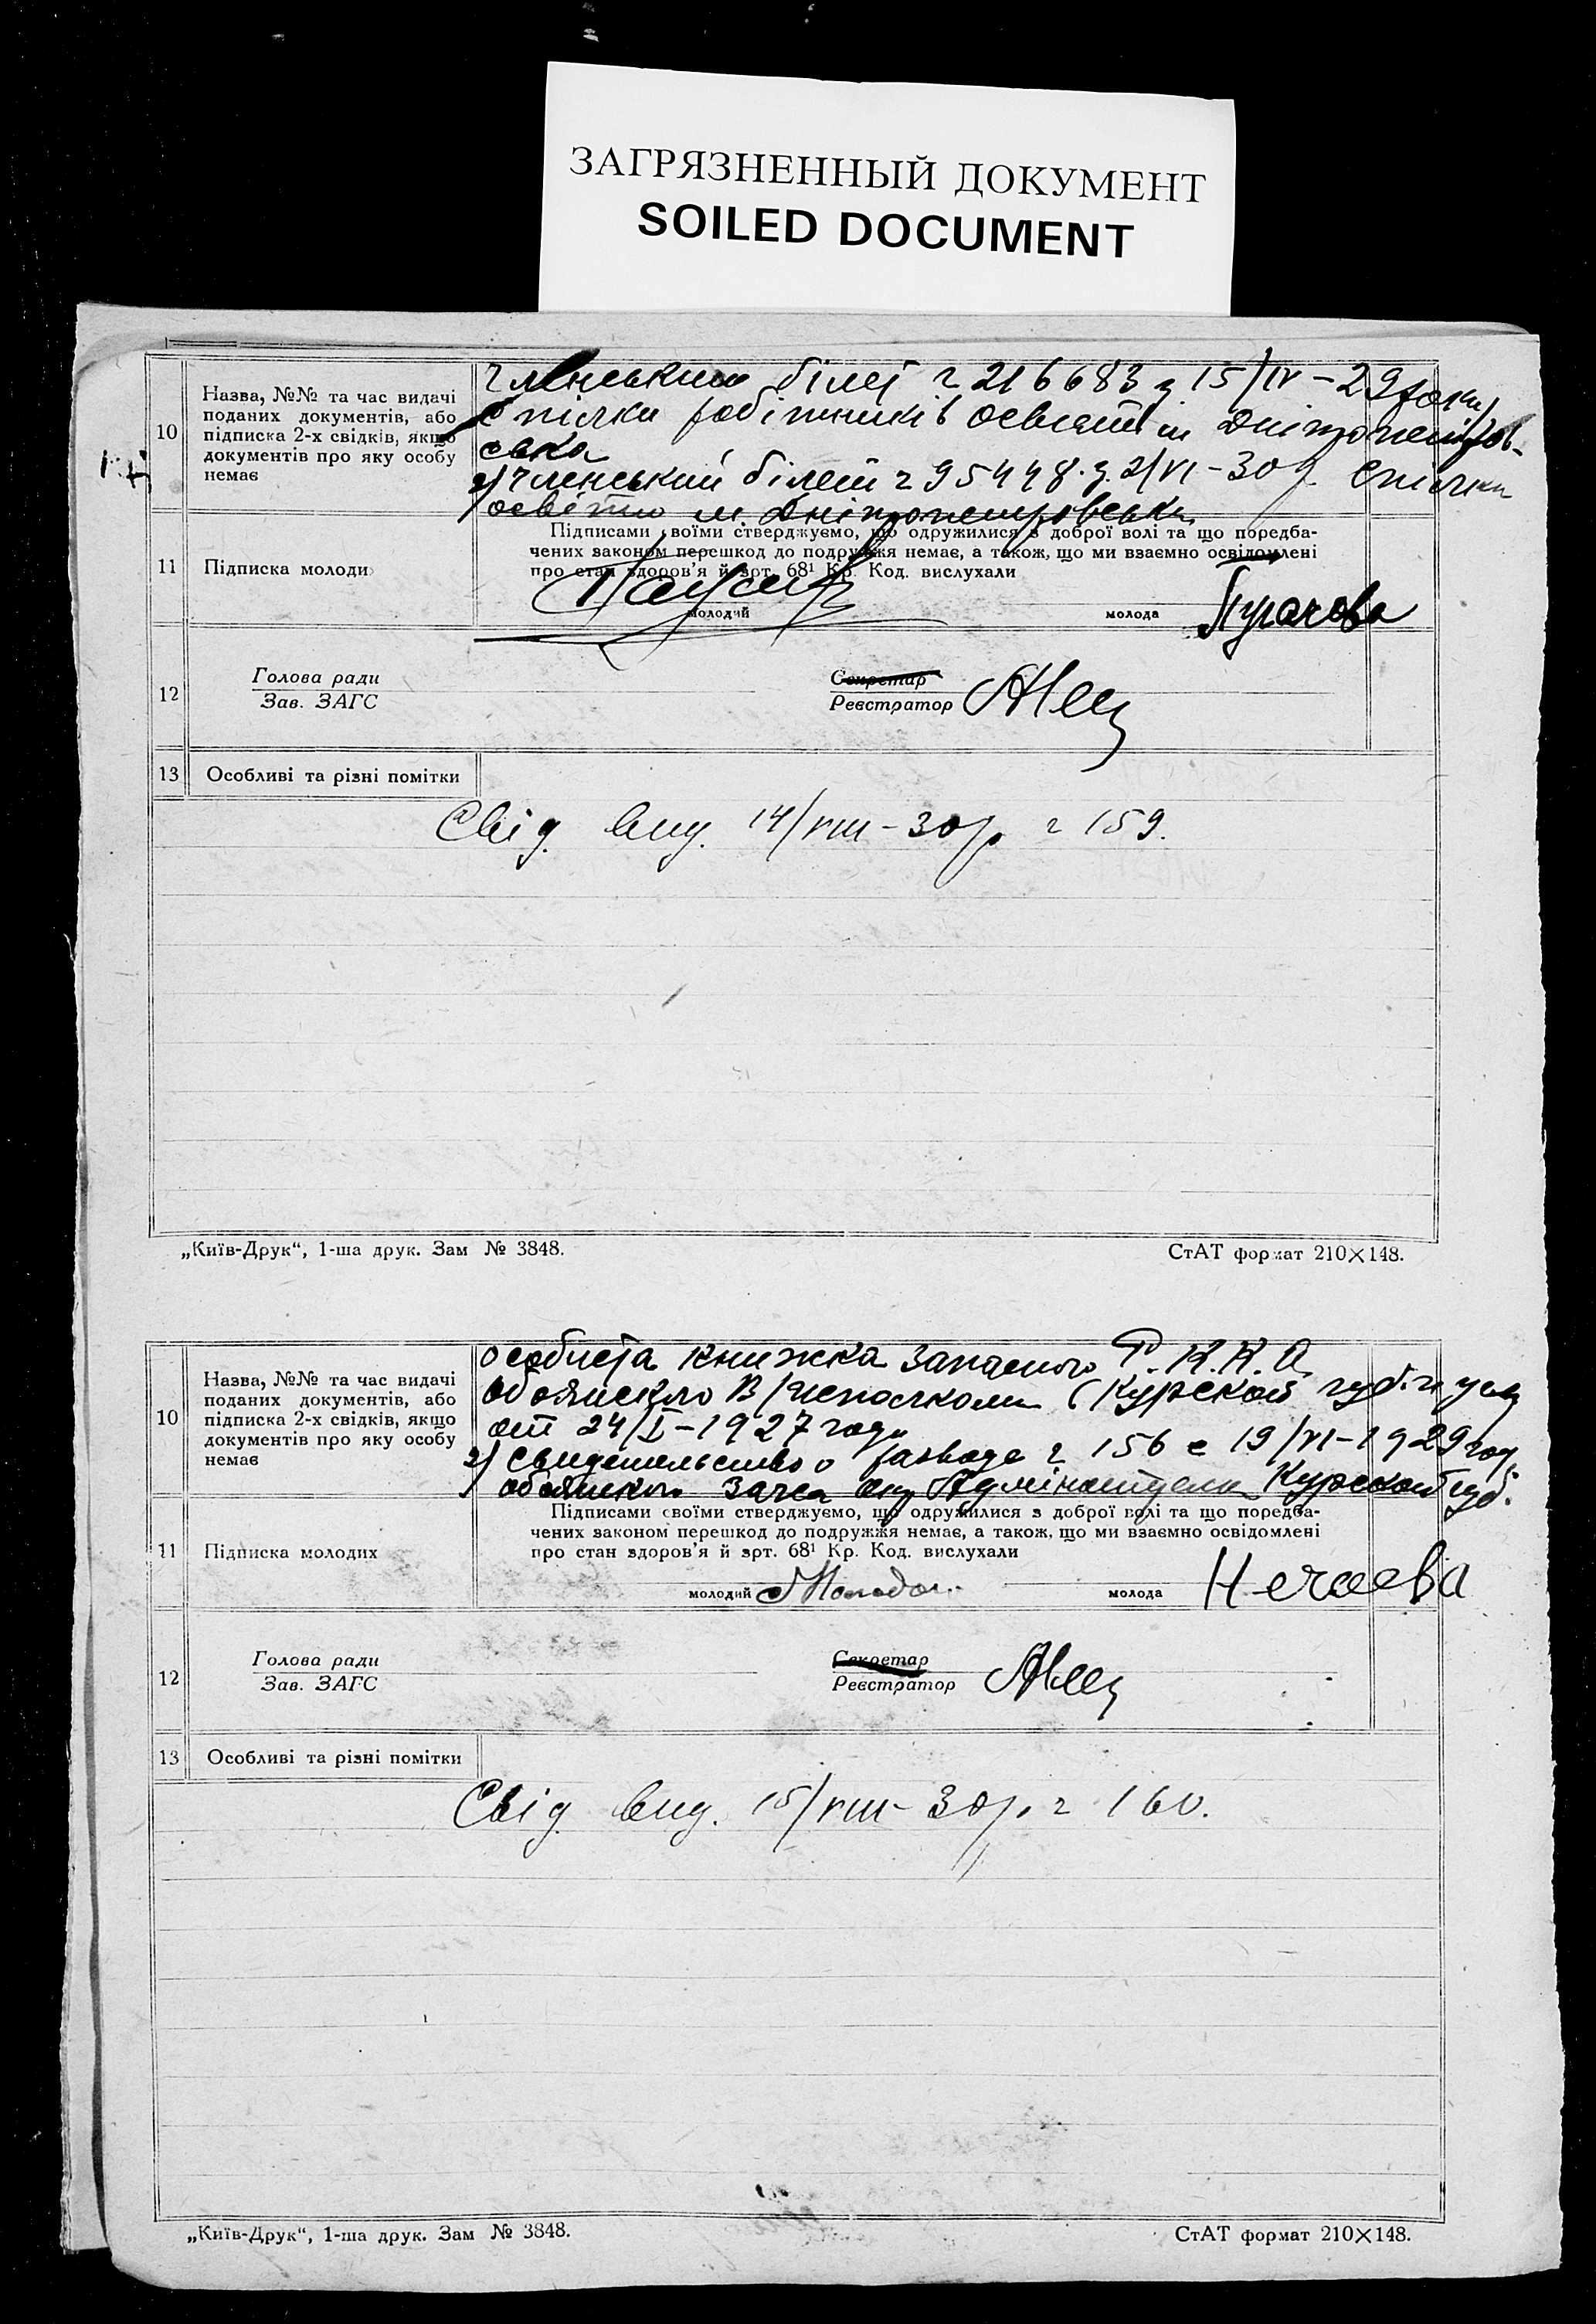 ЗАГРЯЗНЕННЫЙ ДОКУМЕНТ
SOILED DOCUMENT
10
Назва, №№ та час видачі
поданих документів, або
підписка 2-х свідків, якщо
документів про яку особу
немає
членський білет ч 216683 з 15/IV-29 року
Спілки робітників освіти м Дніпропетров-
ська
2) Членський білет ч 95448 з 2/VI-30 р. Спілки
освіти м. Дніпропетровська
11
Підписка молоди
Підписами своїми стверджуємо, що одружилися з доброї волі та що передба-
чених законом перешкод до подружжя немає, а також, що ми взаємно освідомлені
про стан здоров'я й арт. 68¹ Кр. Код. вислухали
молодий
молода Пугачова
12
Голова ради
Зав. ЗАГС
Секретар
Реєстратор
13
Особливі та різні помітки
Свід. вид. 14/VIII-30 р. ч 159.
„Київ-Друк“, 1-ша друк. Зам № 3848.
СтАТ формат 210×148.
10
Назва, №№ та час видачі
поданих документів, або
підписка 2-х свідків, якщо
документів про яку особу
немає
особиста книжка запасного Р.К.К.А
Обоянского В/Исполкома (Курской губ.
от 24/I-1927 года
2) свидетельство о разводе ч 156 с 19/VI-1929 год.
обоянского Загса Курской губ.
11
Підписка молодих
Підписами своїми стверджуємо, що одружилися з доброї волі та що передба-
чених законом перешкод до подружжя немає, а також, що ми взаємно освідомлені
про стан здоров'я й арт. 68¹ Кр. Код. вислухали
молодий
молода Нечаева
12
Голова ради
Зав. ЗАГС
Секретар
Реєстратор
13
Особливі та різні помітки
Свід. вид. 15/VIII-30 р. ч 160.
„Київ-Друк“, 1-ша друк. Зам № 3848.
СтАТ формат 210×148.